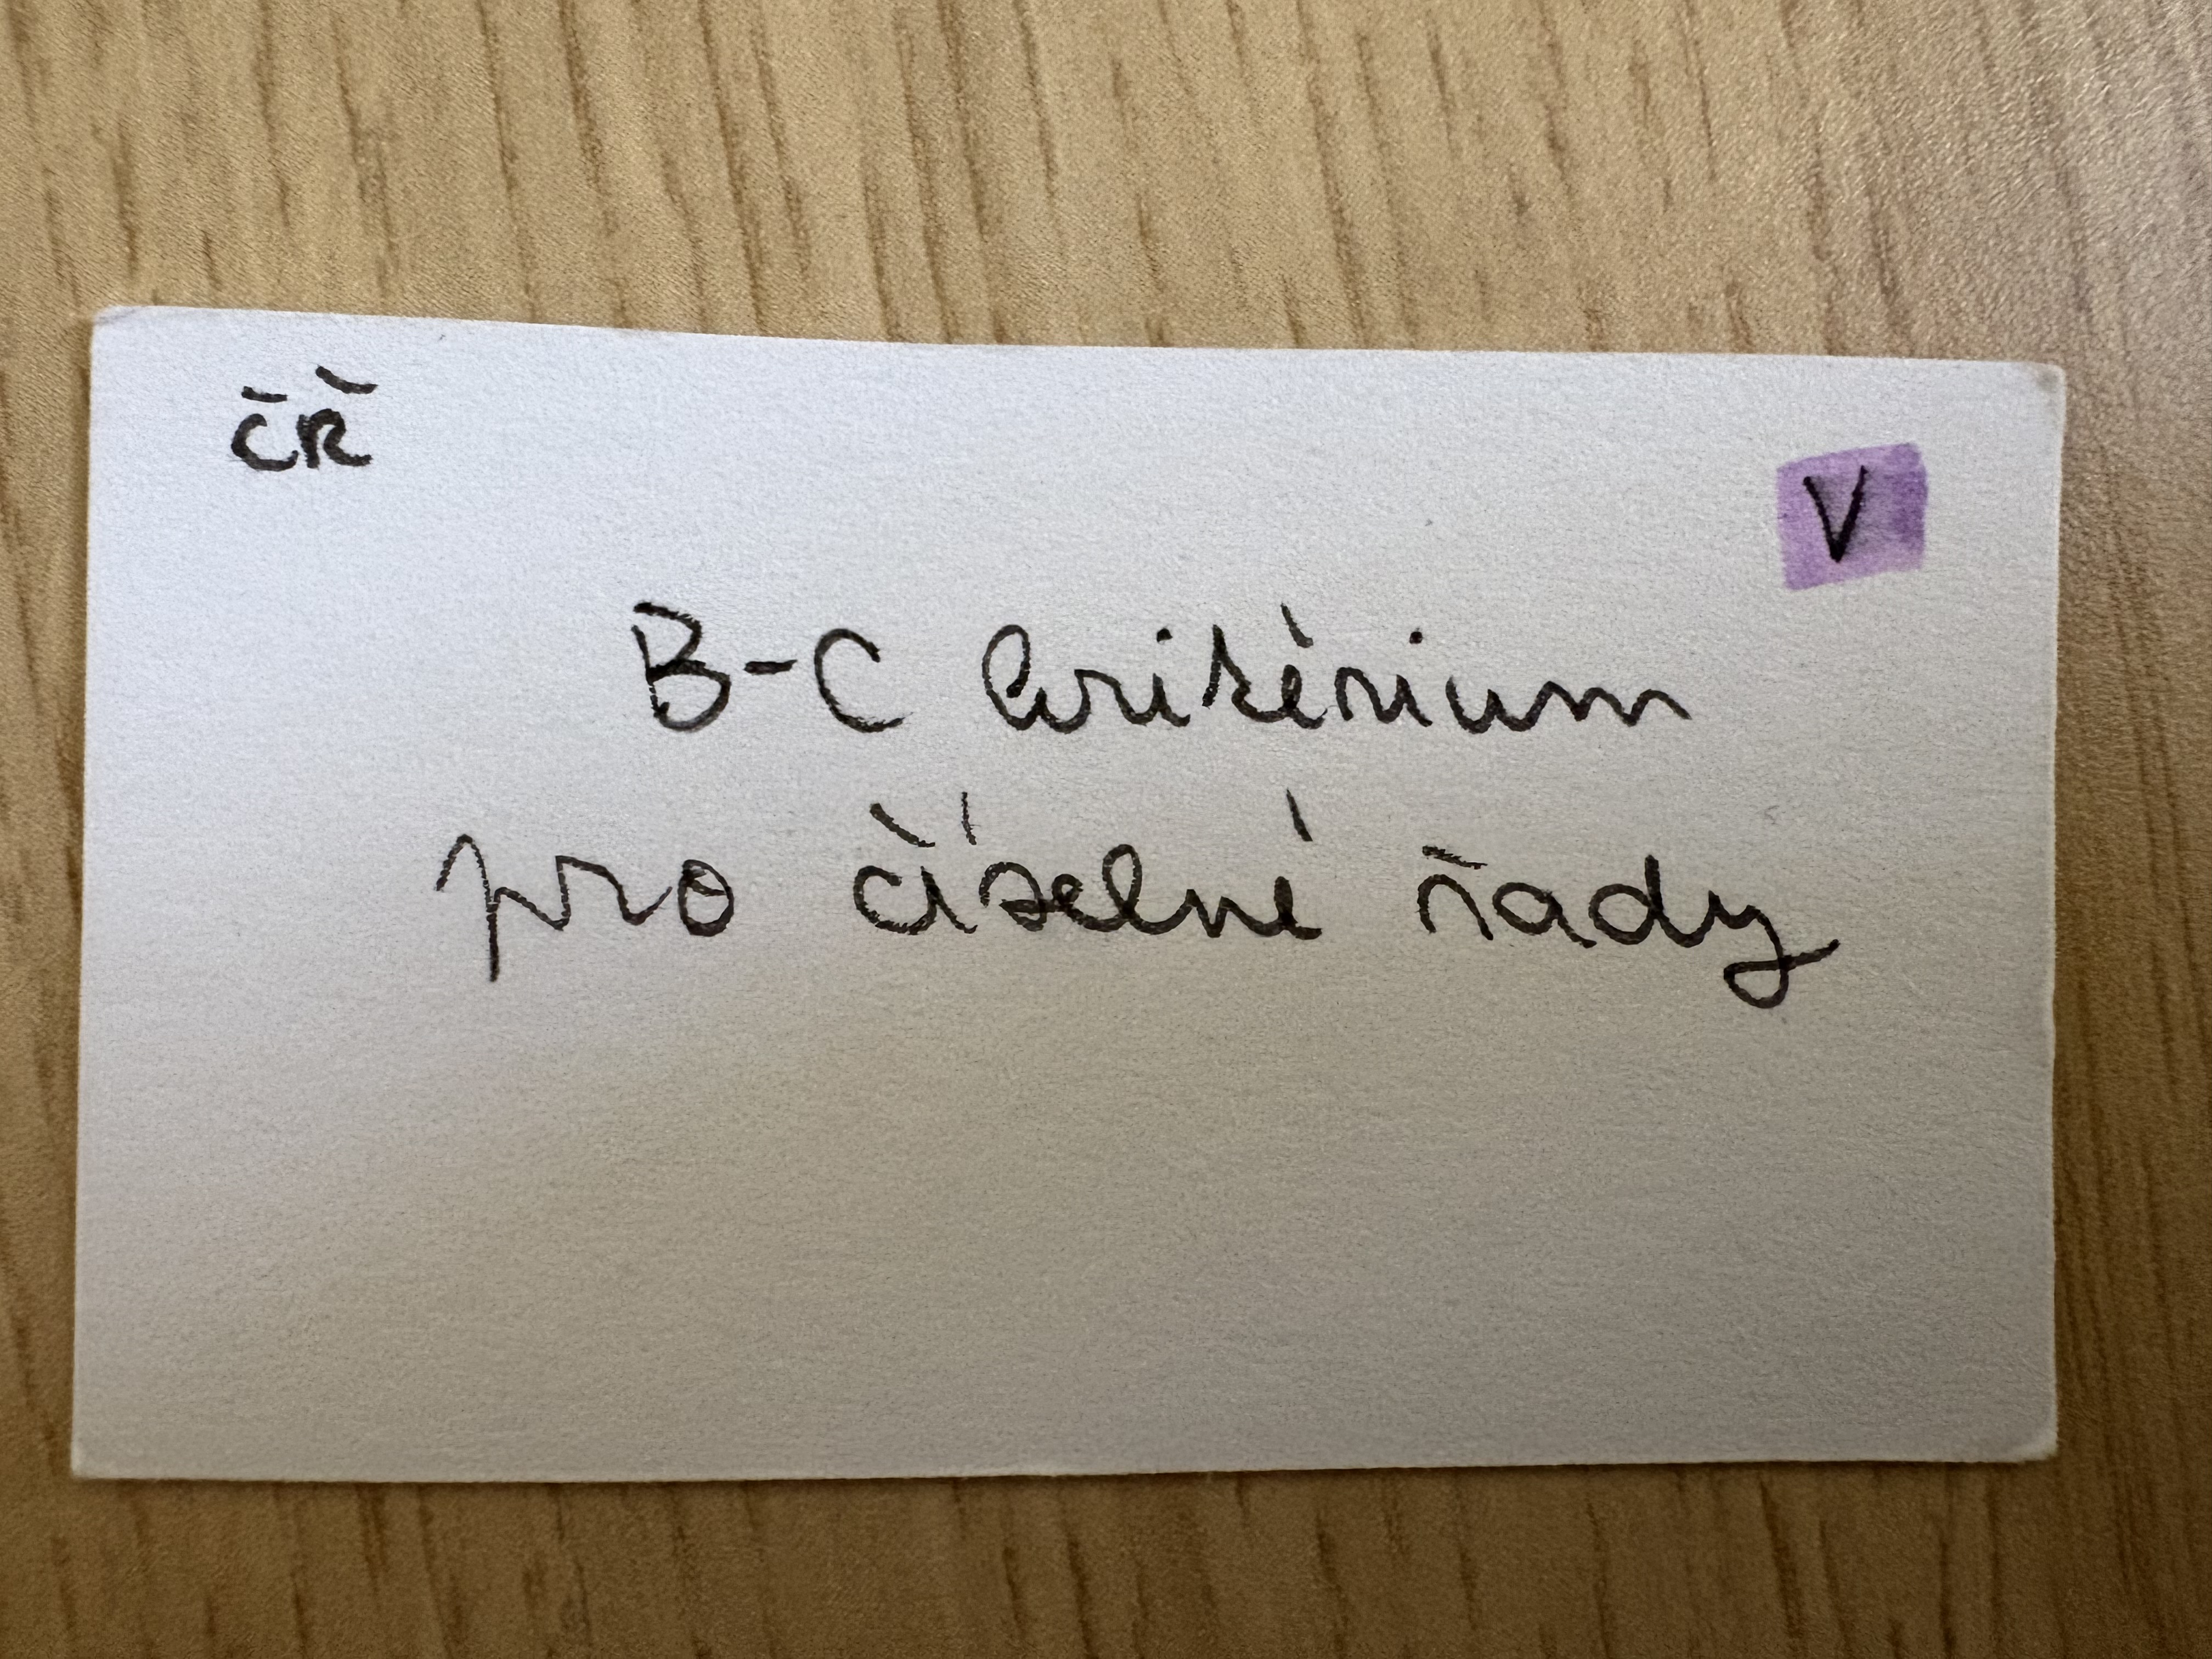 ČŘ
V
B-C kritérium
pro číselné řady